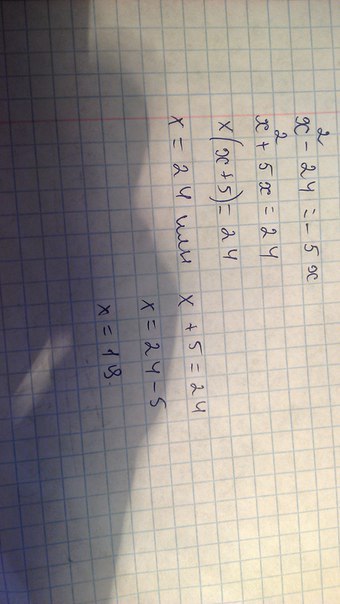 x² - 24 = -5x
x² + 5x = 24
x(x+5) = 24
x = 24 или x + 5 = 24
x = 24 - 5
x = 19